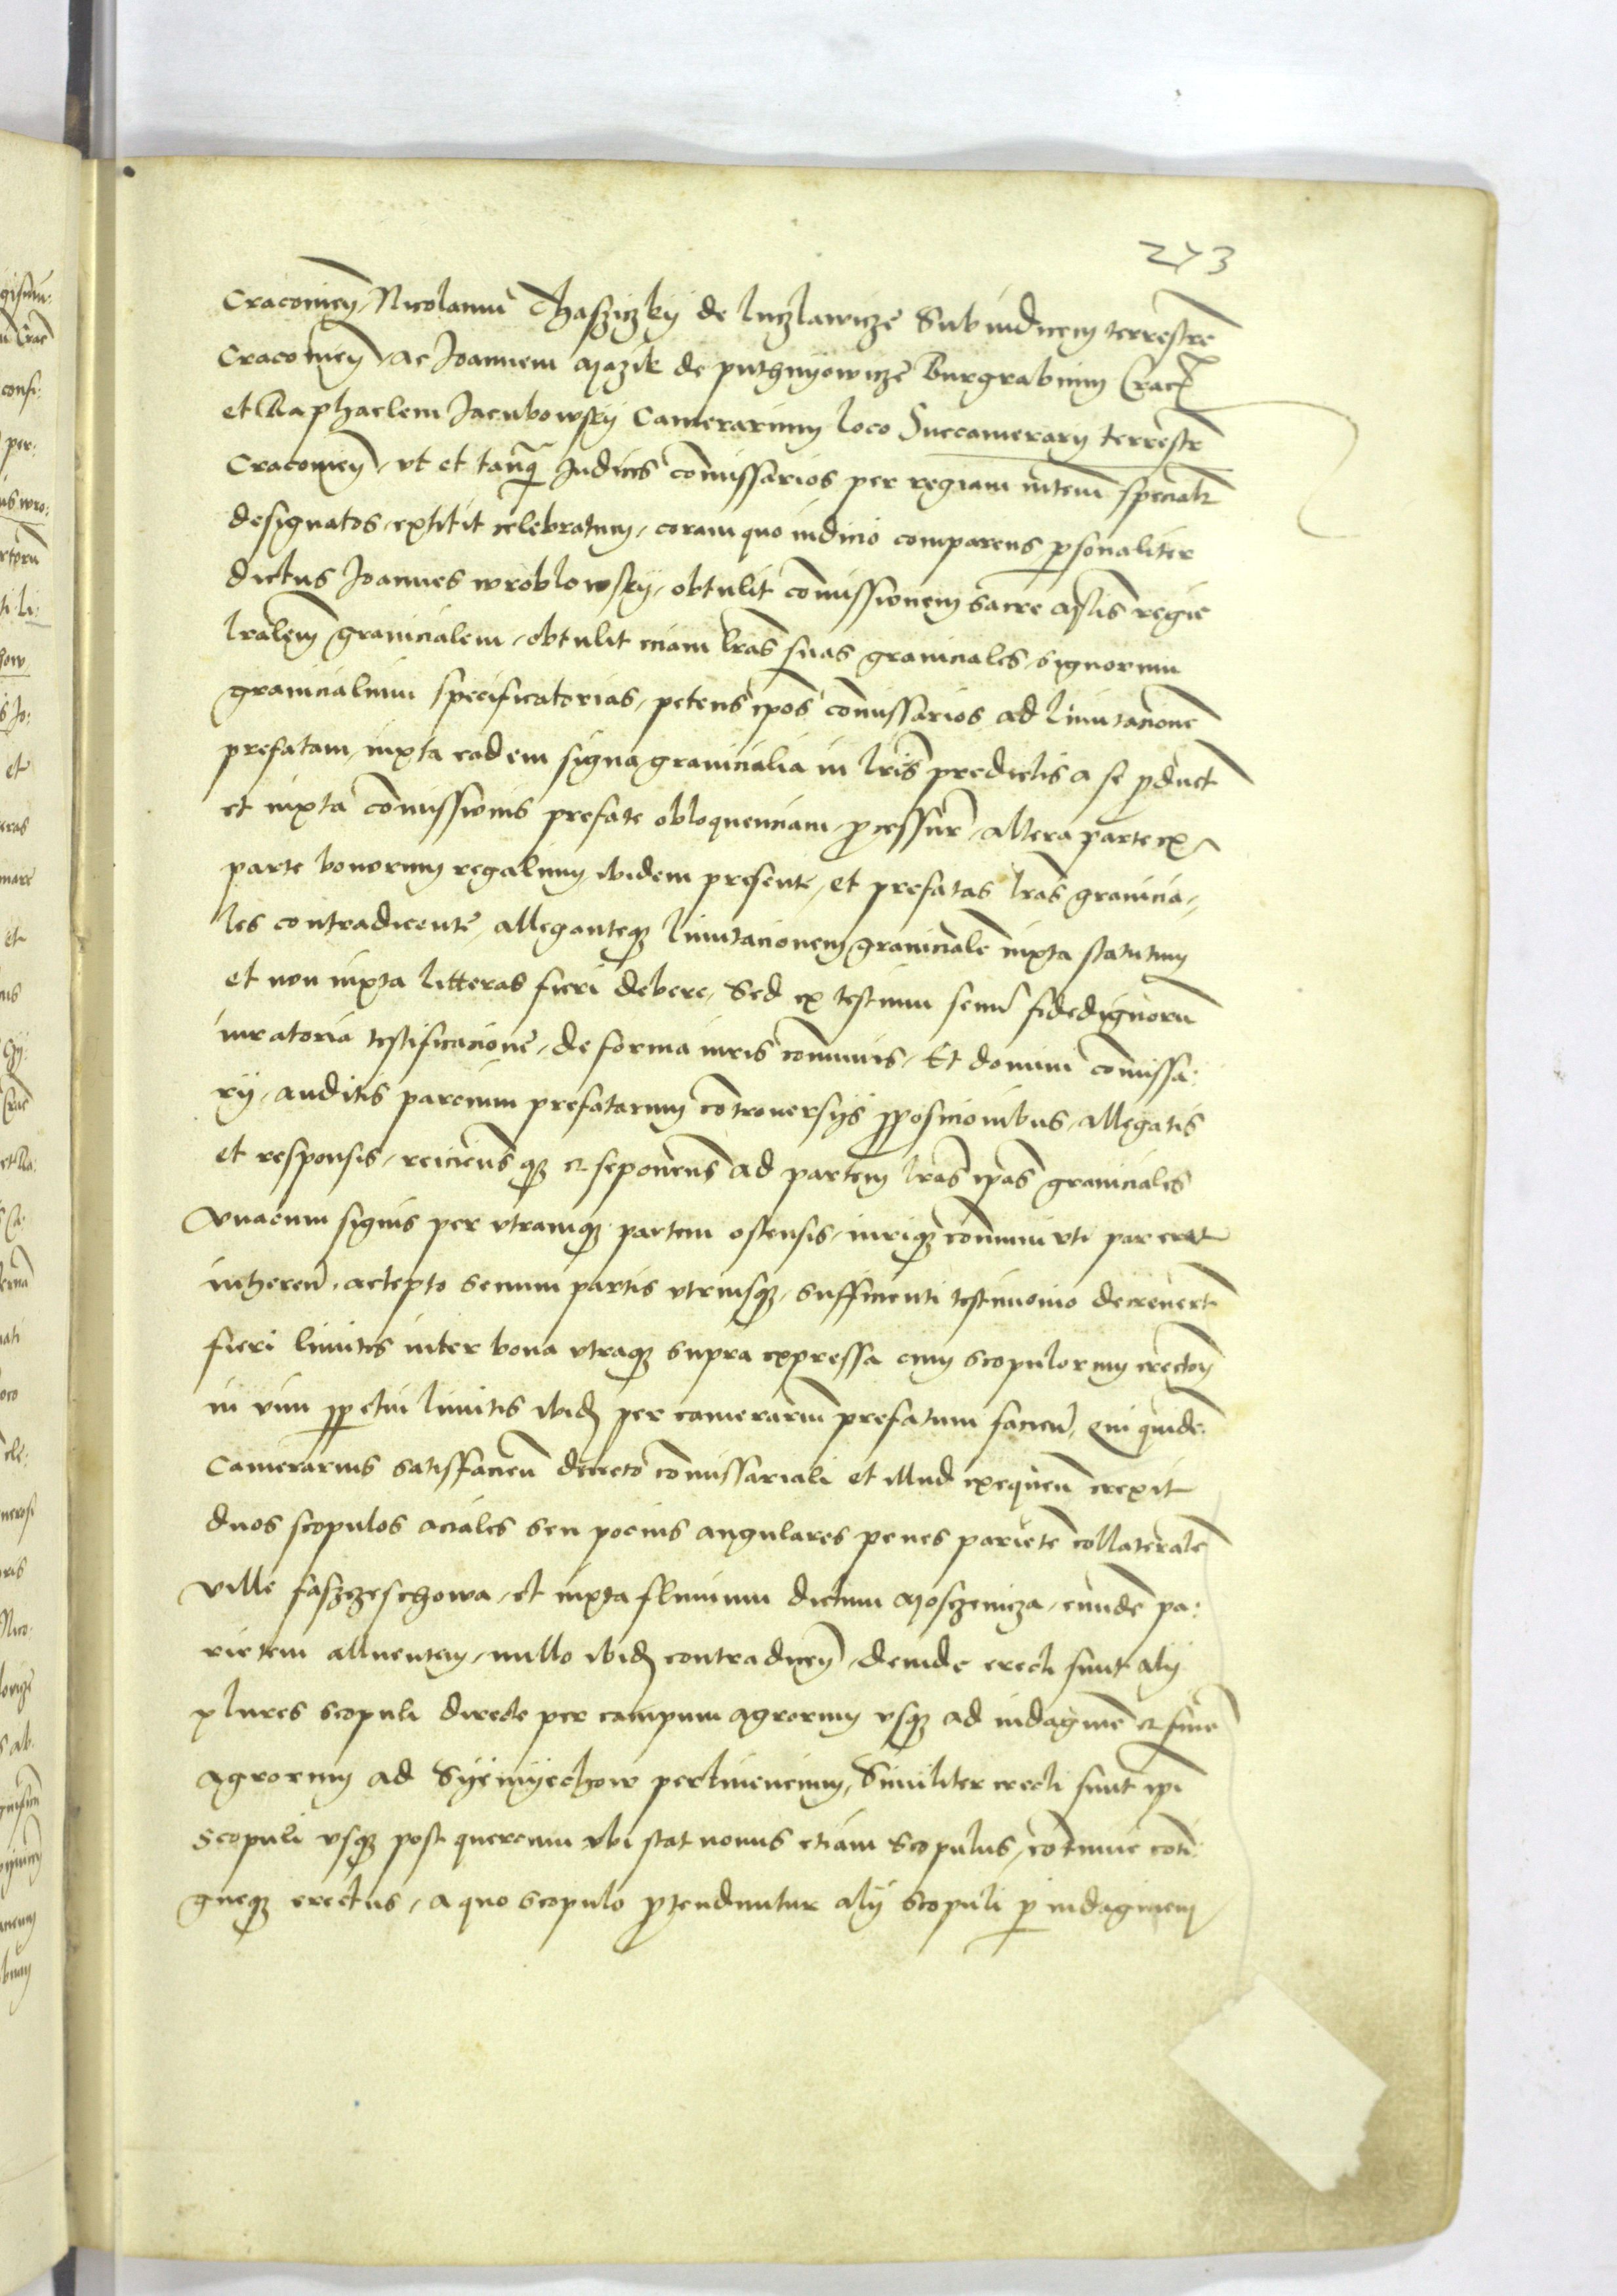 273
Cracovień, Nicolaum Thaszyczky de luczlawicze Subiudicem terrestrē
Cracovień, ac Joannem Mazik de puthnyowicze Burgrabium Crac̄
et Raphaelem Jacubowsky Camerarium loco Succamerarij terrestr̄
Cracovień, vt et tanq̄ Judices com̄issarios per regiam mtem̄ specialr̄
designatos, extitit celebratum, coram quo iudicio comparens p̱sonaliter
dictus Joannes wroblowsky, obtulit com̄issionem sacre Mtis̄ regie
lralem̄ granicialem, obtulit eciam lras̄ suas graniciales, signorum
granicialium specificatorias, petens ip̄os com̄issarios ad limitacionē
prefatam, iuxta eadem signa granicialia in lris̄ predictis a se p̱duct̄
et iuxta com̄issionis prefate obloquenciam, p̱cessur̄, altera parte ex
parte bonorum regalium ibidem presentē, et prefatas lras̄ granicia,,
les contradicentē, alleganteq̨ limitacionem granicialē iuxta statutum
et non iuxta litteras fieri debere, Sed ex testium senu̅ fidedignoru̅
iuratoria testificacionē, de forma iuris com̄unis, Et domini com̄issa:
rij, auditis parcium prefatarum controuersijs p̱posicionibus, allegatis
et responsis, reicieñs q̨ et seponeñs ad partem lras̄ ip̄as graniciales
Vnacum signis per vtramq̨ partem ostensis, iuriq̨ com̄uni vti par erat
inhereñ, accepto senum partis vtriusq̨, sufficienti testimonio decreuert̄
fieri limites inter bona vtraq̨ supra expressa cum scopulorum erectoñ
in vim p̱petui limitis ibid̨ per camerariu̅ prefatum facieñ, qui quide̅
Camerarius satisfacieñ decreto com̄issariali et illud exequeñ erexit
duos scopulos aciales seu pocius angulares penes parietē collateralē
ville faszczeschowa, et iuxta fluuium dictum Moschenicza, eundē pa:
rietem alluentem, nullo ibid̨ contradiceñ, deinde erecti sunt alij
plures scopuli directe per campum agrorum vsq̨ ad indaginē et finē
agrorum ad Syemyechow pertinencium, Similiter erecti sunt ip̄i
scopuli vsq̨ post quercum vbi stat nouus etiam scopulus, continue conti:
gueq̨ erectus, a quo scopulo p̱tenduntur alij scopuli p̱ indaginem